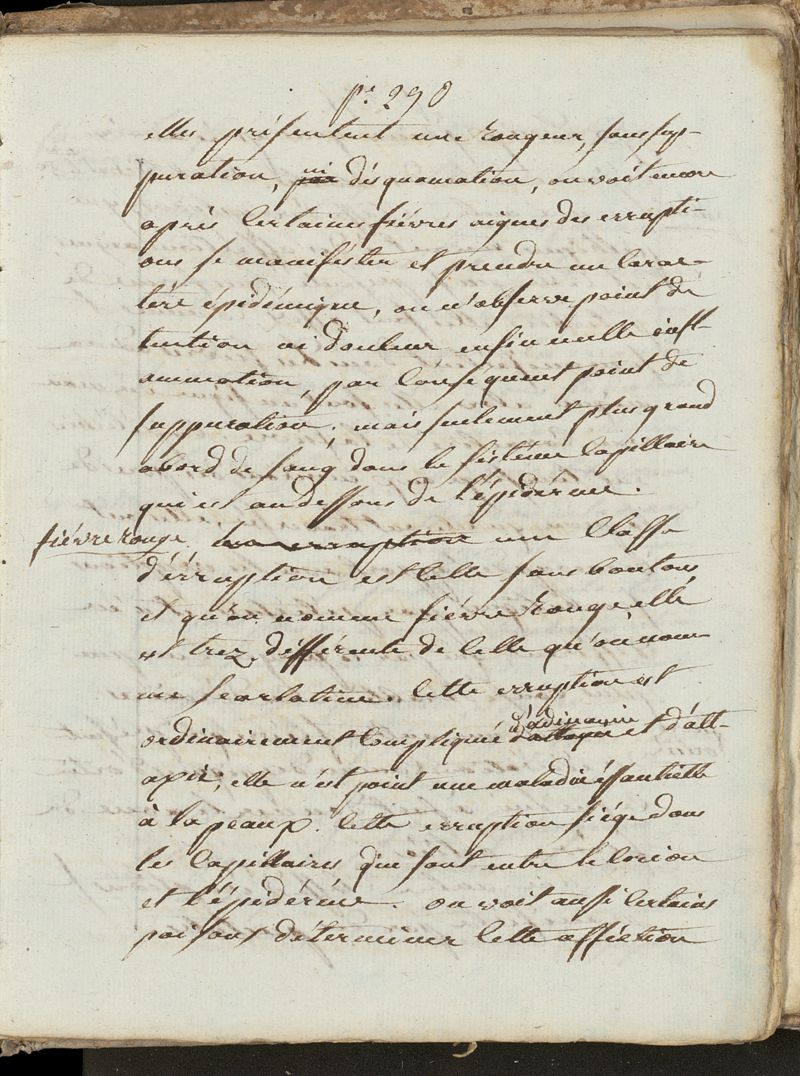 pe. 290
elles présentent une rougeur, sans sup-
puration, ni désquamation, on voit encore
après certaines fiévres aigues des errupti-
ons se manifester et prendre un carac-
tére épidémique, on n'observe point de
tention ni douleur enfin nulle infl-
ammation, par conséquent point de
suppuration; mais seulement plus grand
abord de sang dans le sistéme capillaire
qui est au dessous de l'épidérme.
fiévre rouge, une erruption une classe
d'érruption est celle sans boutons
et qu'on nomme fiévre rouge elle
est trez différente de celle qu'on nom-
me scarlatine. Cette erruption est
ordinairement compliqué d'adinamie et d'att-
axie, elle n'est point une maladie éssantielle
à la peaux. Cette erruption siége dans
les capillaires qui sont entre le corion
et l'épidérme. on voit aussi certains
poisons déterminer cette affection